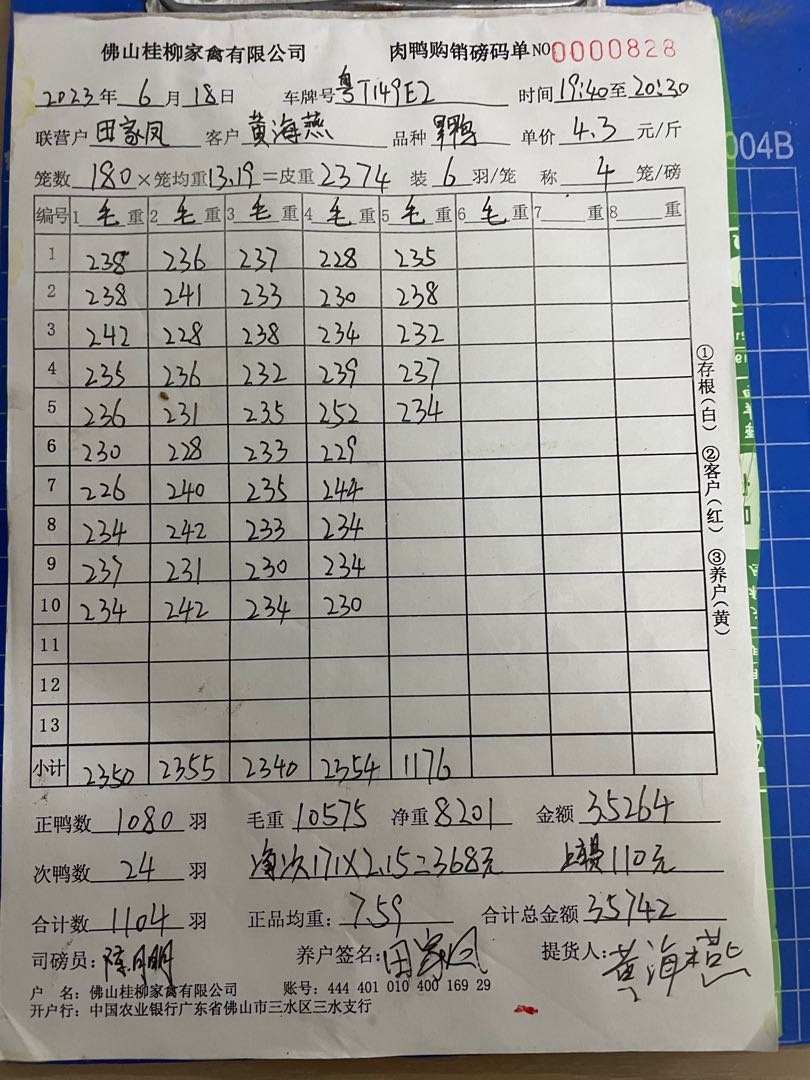 佛山桂柳家禽有限公司 肉鸭购销磅码单 NO 0000828
2023年 6月 18日 车牌号 粤T149E2 时间 19:40至 20:30
联营户 田家凤 客户 黄海燕 品种 单价 4.3 元/斤
笼数 180 ×笼均重 13.19 =皮重 2374 装 6 羽/笼 称 4 笼/磅
编号 1 毛 重 2 毛 重 3 毛 重 4 毛 重 5 毛 重 6 毛 重 7 重 8 重
1 238 236 237 228 235
2 238 241 233 230 238
3 242 228 238 234 232
4 235 236 232 239 237
5 236 231 235 252 234
6 230 228 233 229
7 226 240 235 244
8 234 242 233 234
9 237 231 230 234
10 234 242 234 230
11
12
13
小计 2350 2355 2340 2354 1176
正鸭数 1080 羽 毛重 10575 净重 8201 金额 35264
次鸭数 24 羽 次171×2.15=368元 110元
合计数 1104 羽 正品均重: 7.59 合计总金额 35742
司磅员: 养户签名: 田家凤 提货人: 黄海燕
户 名: 佛山桂柳家禽有限公司 账号: 444 401 010 400 169 29
开户行: 中国农业银行广东省佛山市三水区三水支行
①存根(白) ②客户(红) ③养户(黄)
004B